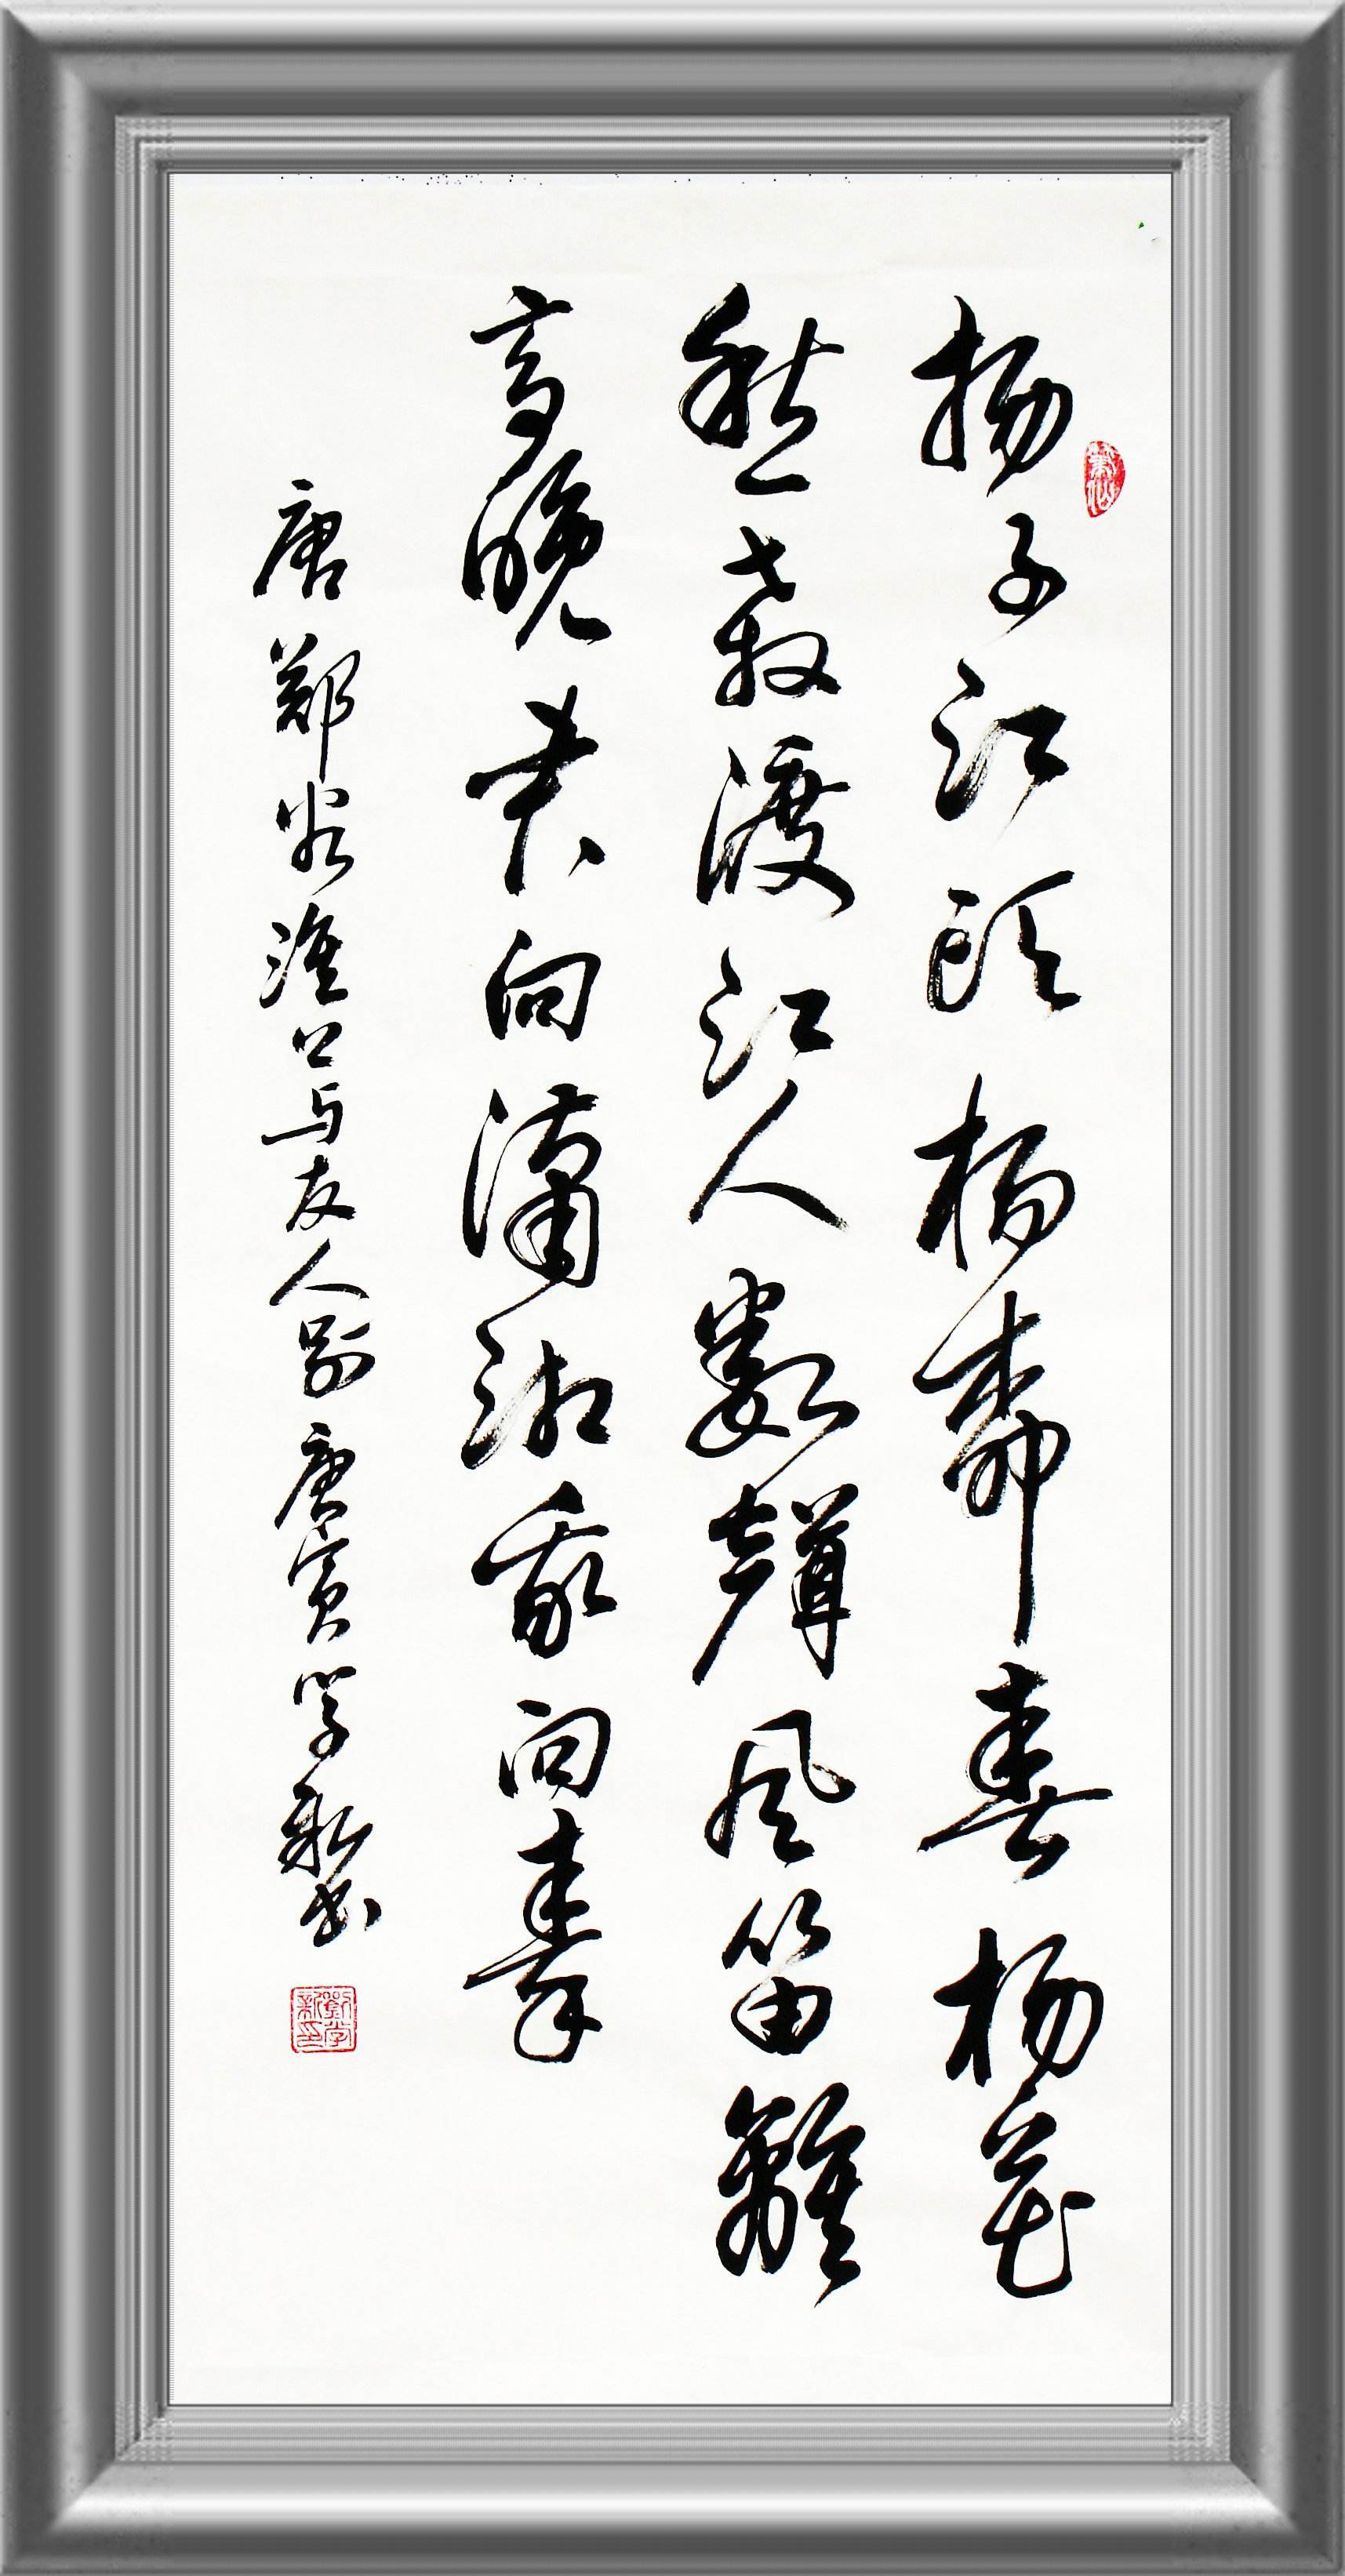 揚子江頭楊柳春楊花
愁殺渡江人數聲風笛離
亭晚君向瀟湘我向秦
唐鄭谷淮上与友人别庚寅學新書